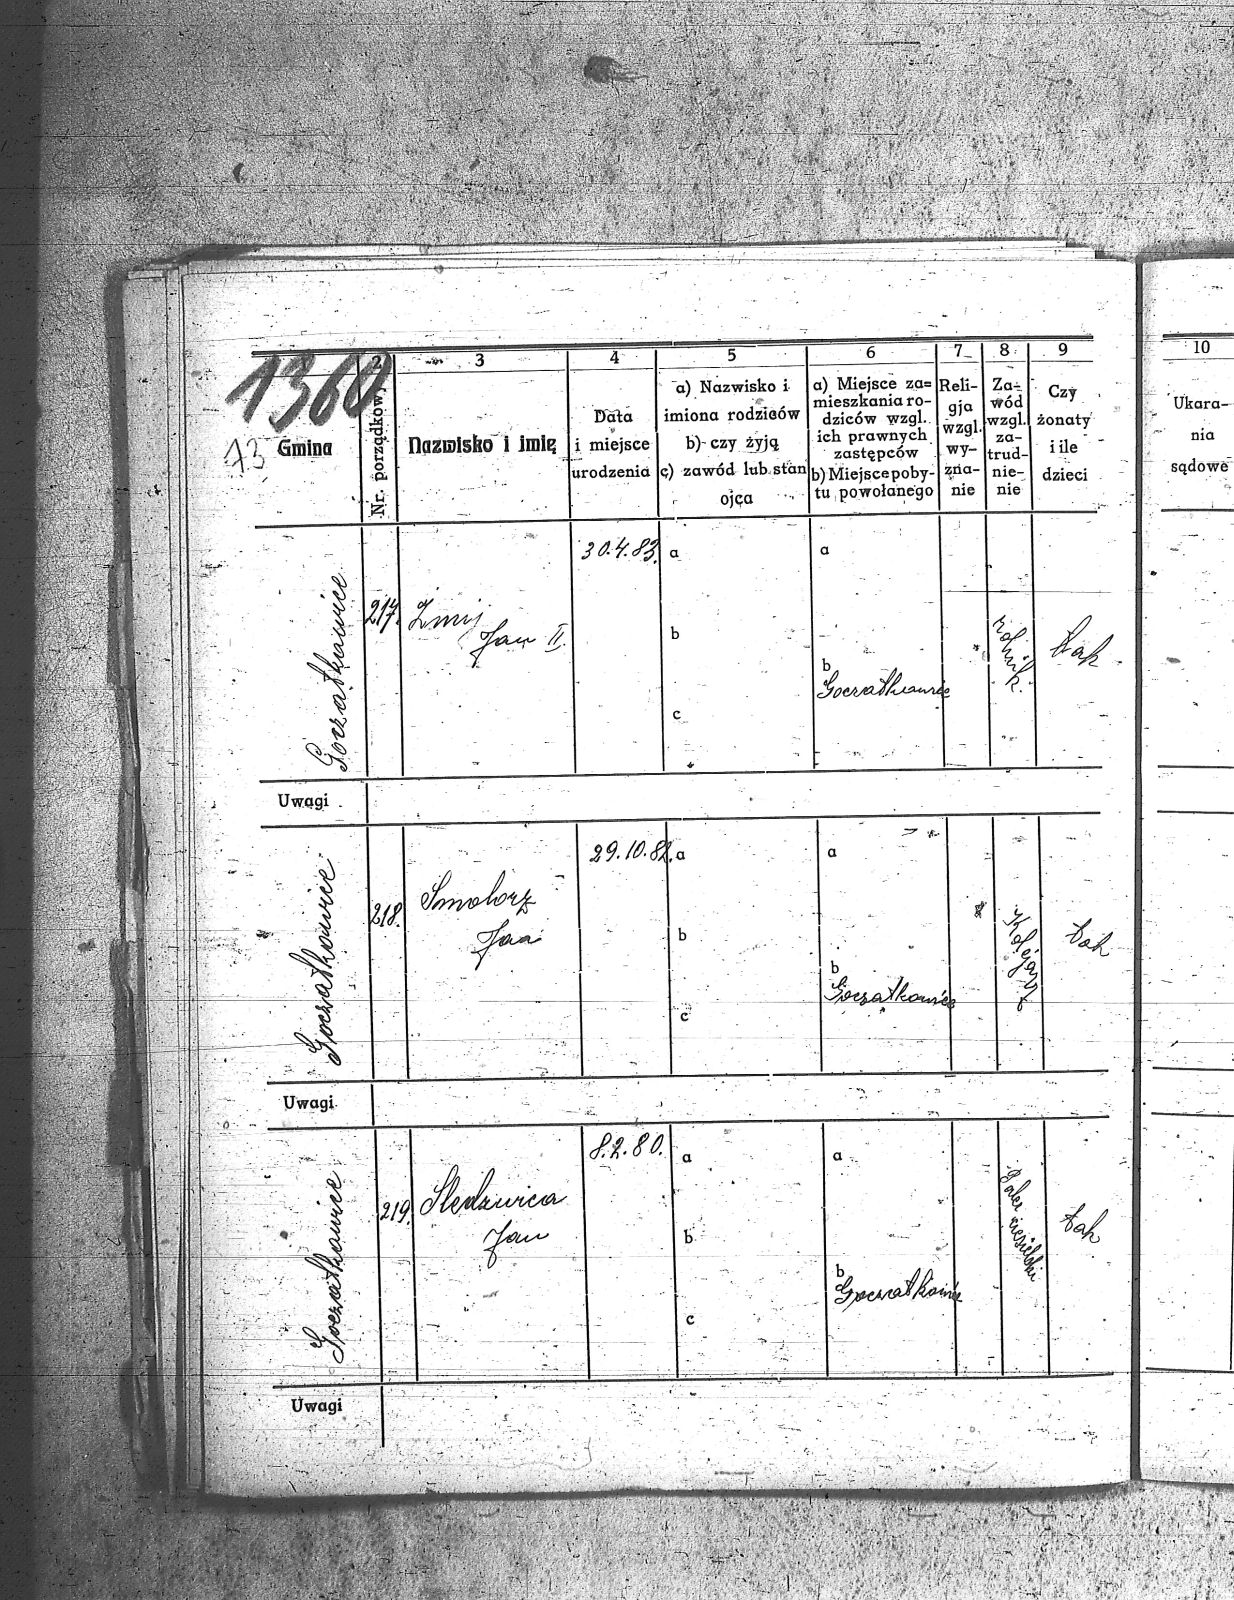 1360
73
Gmina
2
Nr. porządkowy
3
Nazwisko i imię
4
Data
i miejsce
urodzenia
5
a) Nazwisko i
imiona rodziców
b) czy żyją
c) zawód lub stan
ojca
6
a) Miejsce za=
mieszkania ro-
dziców wzgl.
ich prawnych
zastępców
b) Miejsce poby-
tu powołanego
7
Reli-
gja
wzgl.
wy-
zna-
nie
8
Za-
wód
wzgl.
za-
trud-
nie-
nie
9
Czy
żonaty
i ile
dzieci
10
Ukara-
nia
sądowe
Goczałkowice
217.
Żmij
Jan II
30.4.83.
a
b
c
a
b
Goczałkowice
rolnik
tak
Uwagi
Goczałkowice
218.
Smolorz
Jan
29.10.82.
a
b
c
a
b
Goczałkowice
Kolejarz
tak
Uwagi
Goczałkowice
219.
Sledzwica
Jan
8.2.80.
a
b
c
a
b
Goczałkowice
ciesielski
tak
Uwagi